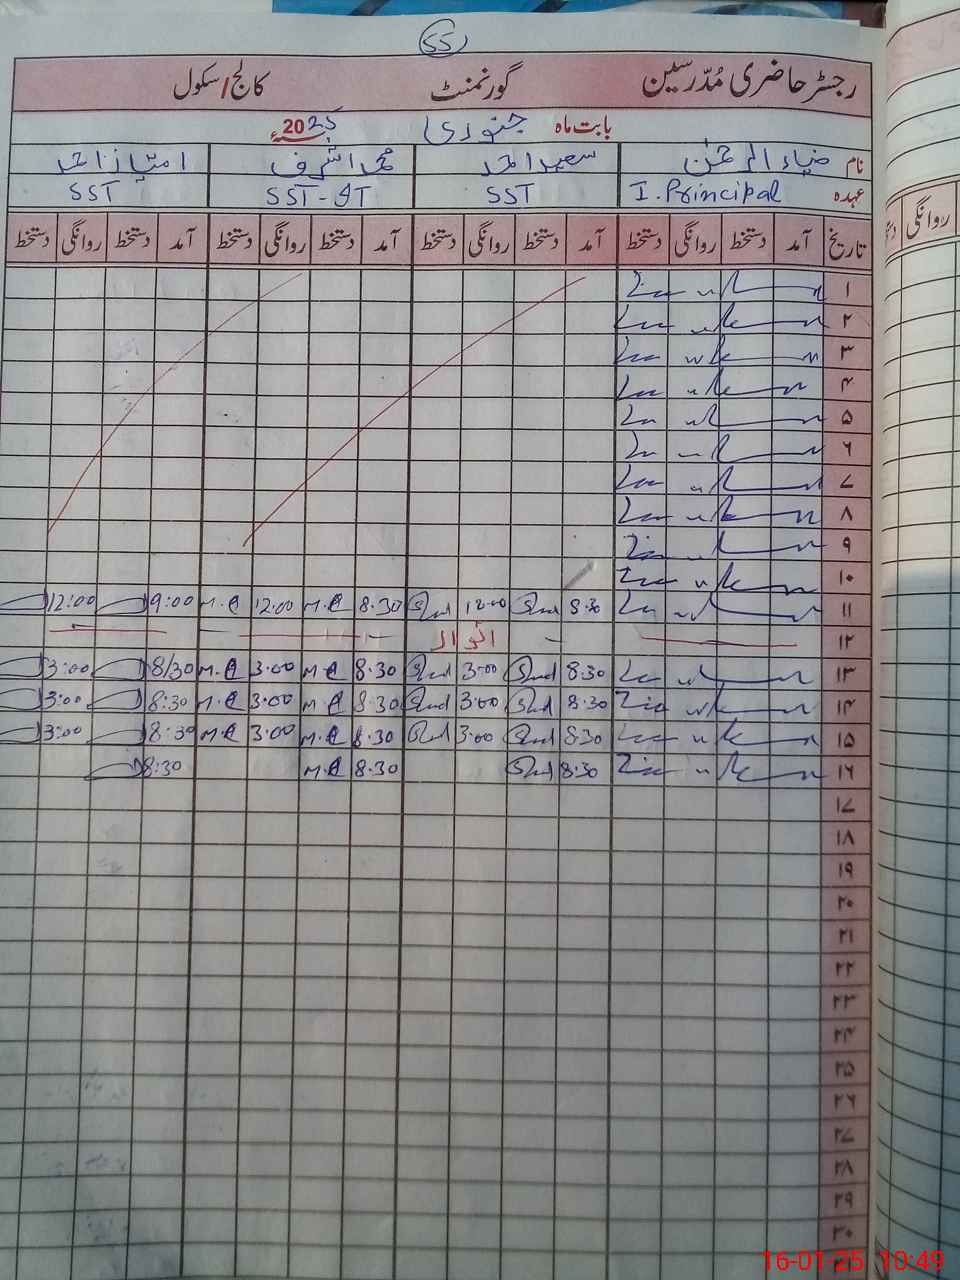 55
رجسٹر حاضری مُدرّسین گورنمنٹ کالج/سکول
بابت ماہ جنوری 2025ء
نام ضیاء الرحمٰن سعید احمد محمد اشرف امتیاز احمد
عہدہ I. Principal SST SST-IT SST
تاریخ آمد دستخط روانگی دستخط آمد دستخط روانگی دستخط آمد دستخط روانگی دستخط آمد دستخط روانگی دستخط
۱
۲
۳
۴
۵
۶
۷
۸
۹
۱۰
۱۱ 8.30 12.00 8.30 M.A 12.00 M.A 9:00 12:00
۱۲ اتوار
۱۳ 8.30 3.00 8.30 M.A 3.00 M.A 8/30 3:00
۱۴ 8.30 3.00 8.30 M.A 3.00 M.A 8:30 3:00
۱۵ 8.30 3.00 8.30 M.A 3.00 M.A 8:30 3:00
۱۶ 8.30 8.30 M.A 8:30
۱۷
۱۸
۱۹
۲۰
۲۱
۲۲
۲۳
۲۴
۲۵
۲۶
۲۷
۲۸
۲۹
۳۰
روانگی
16-01-25 10:49